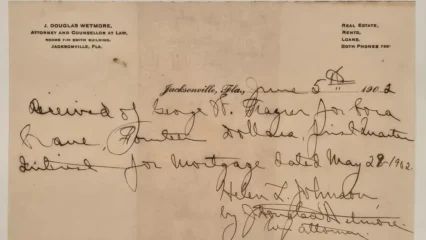 J. DOUGLAS WETMORE,
ATTORNEY AND COUNSELLOR AT LAW,
ROOMS 7-11 SMITH BUILDING,
JACKSONVILLE, FLA.
REAL ESTATE,
RENTS,
LOANS.
BOTH PHONES
Jacksonville, Fla., June 5th 1902
Received of George W. Frazier for Cora
Fourteen Dollars, first quarter
Interest for Mortgage dated May 28-1902.
Helen L. Johnson
by J. Douglas Wetmore
her attorney.